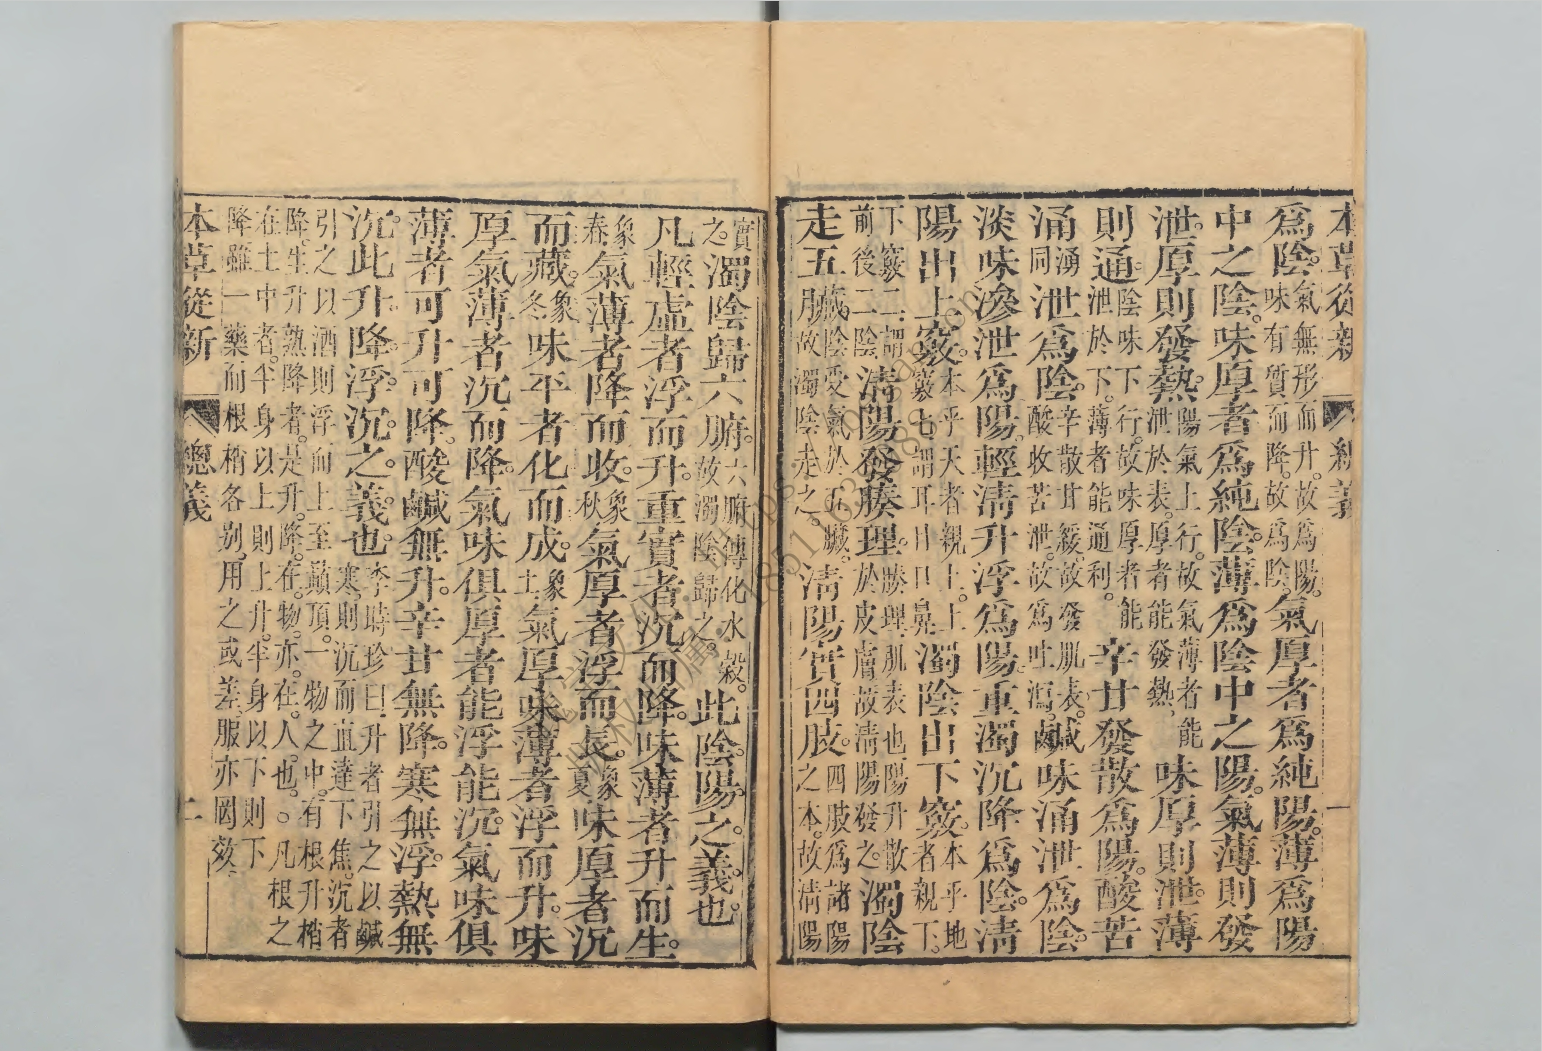 本草從新 總義 一
爲陰。氣無形而升。故爲陽。味有質而降。故爲陰。氣厚者爲純陽。薄爲陽
中之陰。味厚者爲純陰。薄爲陰中之陽。氣薄則發
泄。厚則發熱。陽氣上行。故氣薄者能泄於表。厚者能發熱。味厚則泄。薄
則通。陰味下行。故味厚者能泄於下。薄者能通利。辛甘發散爲陽。酸苦
涌湧同泄爲陰。辛散甘緩。故發肌表。酸收苦泄。故爲吐瀉。鹹味涌泄爲陰。
淡味滲泄爲陽。輕清升浮爲陽。重濁沉降爲陰。清
陽出上竅。本乎天者親上。上竅七。謂耳目口鼻。濁陰出下竅。本乎地者親下。
下竅二。謂前後二陰。清陽發腠理。腠理肌表也。陽升散於皮膚。故清陽發之。濁陰
走五臟。臟陰受氣於五臟。故濁陰走之。清陽實四肢。四肢爲諸陽之本。故清陽
實之。濁陰歸六腑。六腑傳化水穀。故濁陰歸之。此陰陽之義也。
凡輕虛者浮而升。重實者沉而降。味薄者升而生。
象春。氣薄者降而收。象秋。氣厚者浮而長。象夏。味厚者沉
而藏。象冬。味平者化而成。象土。氣厚味薄者浮而升。味
厚氣薄者沉而降。氣味俱厚者能浮能沉。氣味俱
薄者可升可降。酸鹹無升。辛甘無降。寒無浮。熱無
沉。此升降浮沉之義也。李時珍曰。升者引之以鹹寒。則沉而直達下焦。沉者
引之以酒則浮而上至巔頂。一物之中。有根升梢
降。生升熱降者。是升。降。在。物。亦。在。人。也。。凡根之
在土中者。半身以上則上升。半身以下則下
降。雖一藥而根梢各别。用之或差。服亦罔效。
本草從新 總義 二